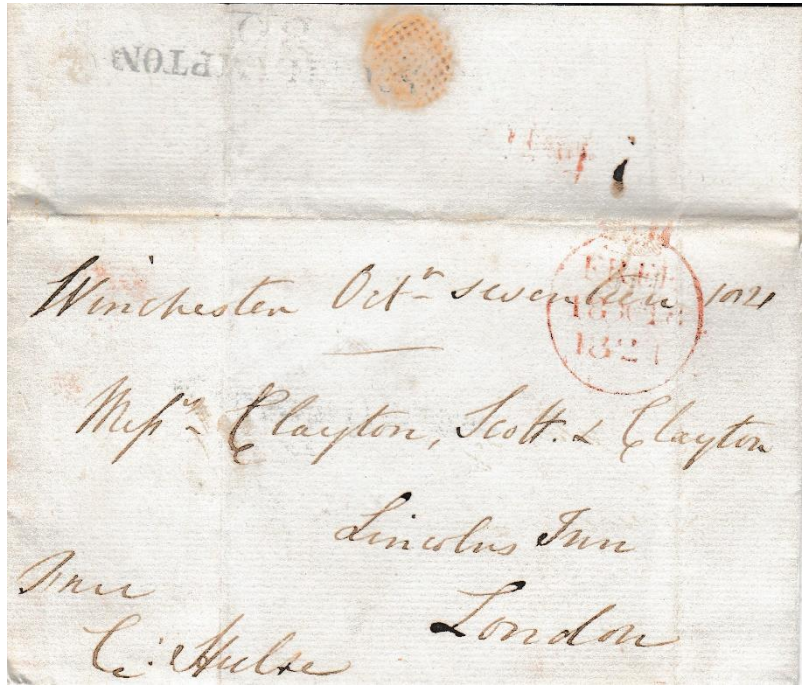 Winchester Octr seventeen 1821
FREE
18 OC 18
1821
Messrs Clayton, Scott & Clayton
Lincolns Inn
London
Free
C: Hulse